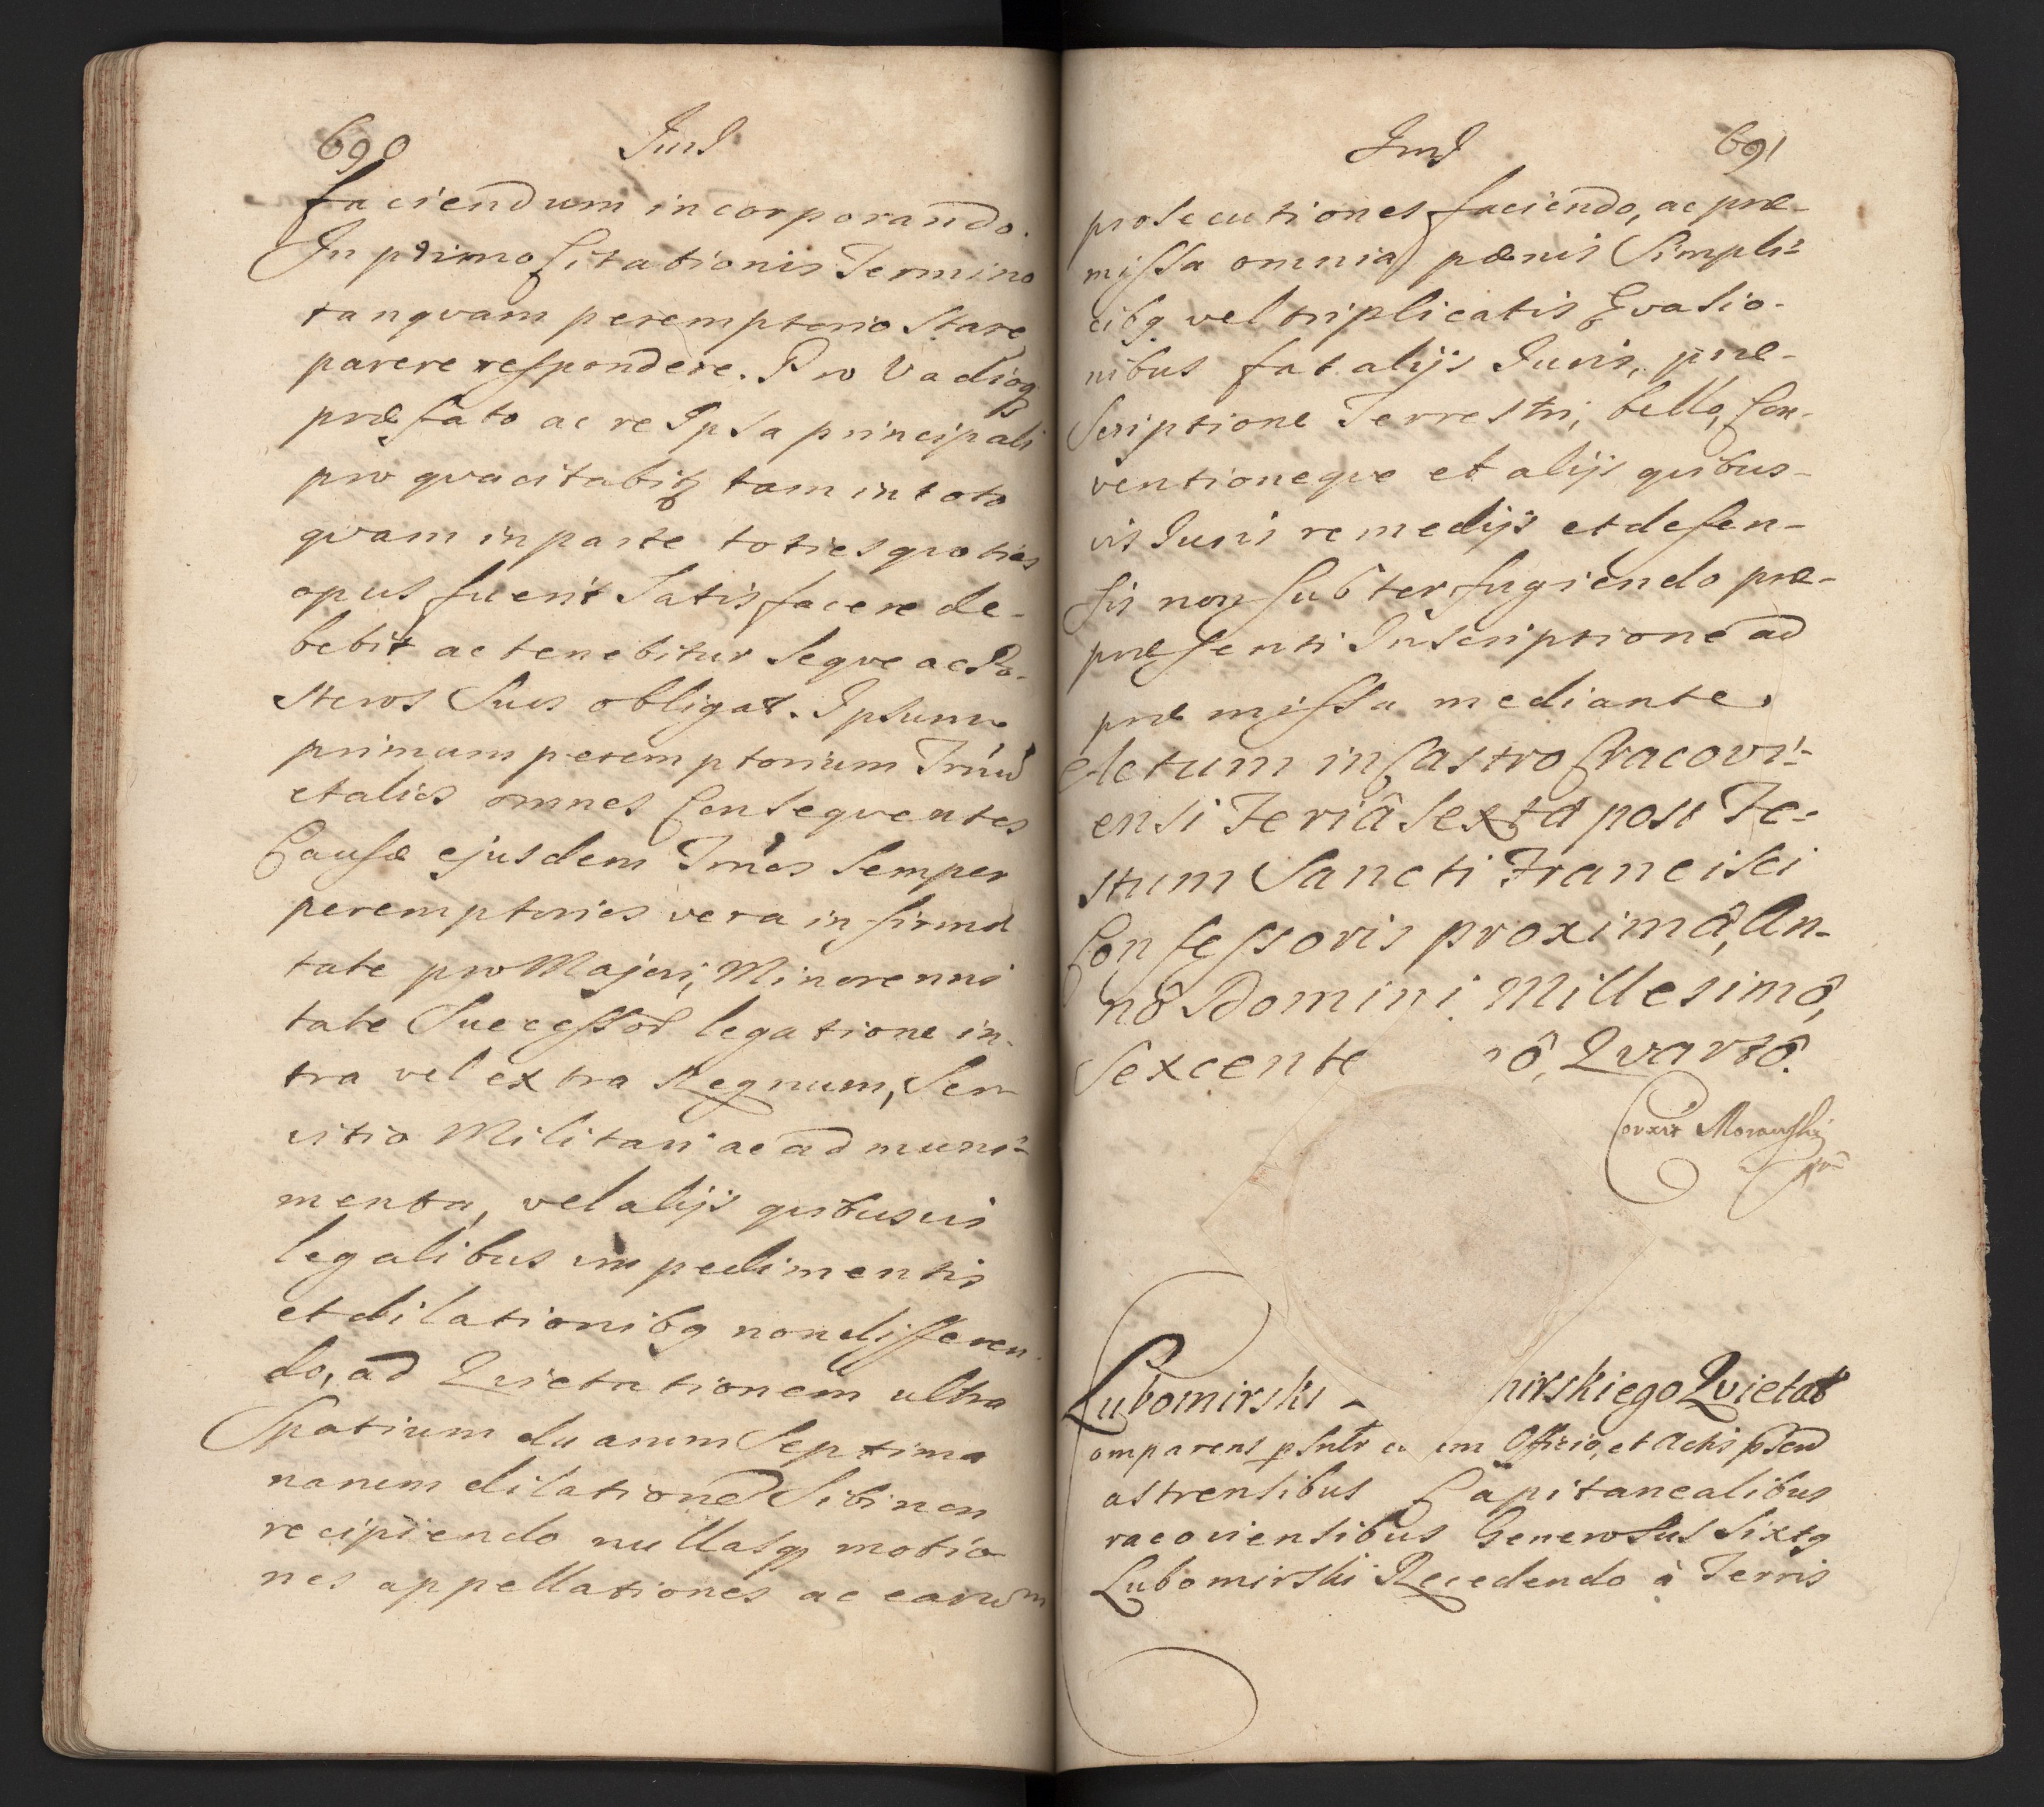 690 Ind
faciendum incorporando.
In primo Citationis Termino
tanqvam peremptorio stare
parere respondere. Pro Vadioq
præfato ac re Ipsa principali
pro qva citabitz tam in toto
qvam in parte toties qvoties
opus fuerit Satisfacere de-
bebit ac tenebitur Seqve ac Po-
steros Suos obligat. Ipsum
primum peremptorium Tmũ
et alios omnes Conseqventes
Causæ ejusdem Tmos Semper
peremptorios vera infirmi
tate pro Majori, Minorenni
tate Successor legatione in-
tra vel extra Regnum, Ser
vitio Militari ac ad muni-
menta, vel alijs qvibusvis
legalibus impedimentis
et dilationibq non differen-
do, ad Qvietationem ultra
Spatium duarum Septima
narum dilatione Sibi non
recipiendo nullasq motio
nes appellationes ac earum
Ind 691
prosecutiones faciendo, ac præ-
missa omnia pænis Simpli-
cibq vel triplicatis Evasio-
nibus fatalijs Juris, præ-
Scriptione Terrestri, bello, Con-
ventioneqve et alijs qvibus-
vis Juris remedijs et defen-
sis non Subterfugiendo præ-
præsenti Inscriptione ad
præmissa mediante.
Actum in Castro Cracovi-
ensi Feriâ Sexta post Fe-
stum Sancti Francisci
Confessoris proximâ, An-
nô Domini Millesimô,
Sexcente nô, Qvartô.
Correxit Morawski
Lubomirski hirskiego Qvietat
omparens pSnlr em Officio, et Actis pSend
astrensibus Capitanealibus
racoviensibus Generosus Sixtq
Lubomirski Recedendo à Terris